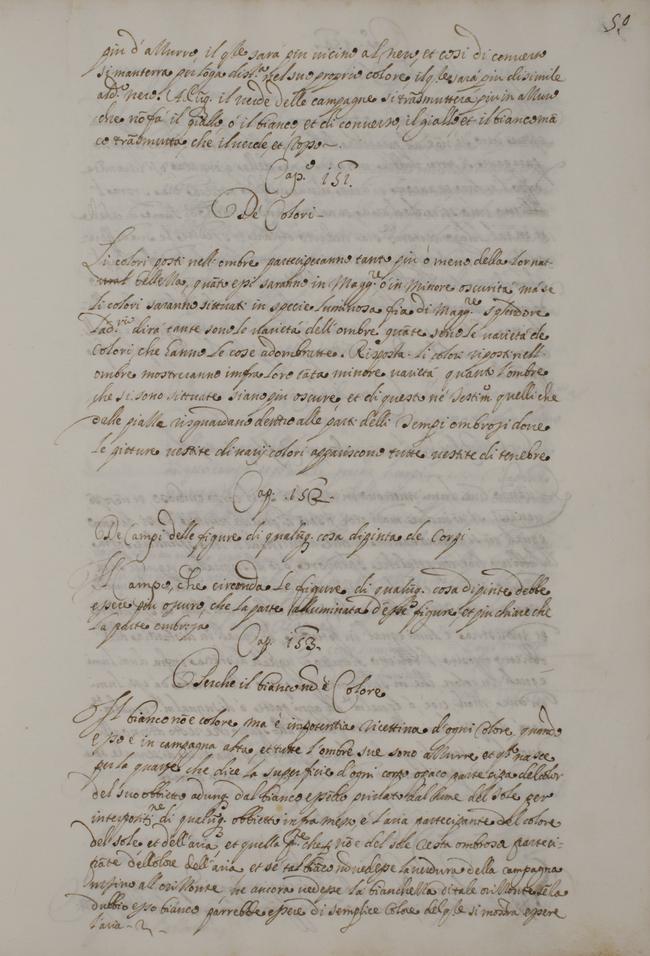 50
piu d'azzurro, il qle sara piu vicino al nero, et cosi di converso
si manterra per loga dista. nel suo proprio colore il qle sará piu disimile
al do. nero. il verde delle campagne si trasmuttera piu in azzurro
che nō fa il giallo, o il bianco, et di converso, il giallo et il bianco mā
co trasmutta, che il verde, et Rosso.
Cap.o 151.
De Colori.
Li colori posti nell'ombre parteciperanno tanto piu ó meno della lor nat-
ural bellezza, quāto essi saranno in Magg.re ó in Minore oscuritá, ma se
li colori saranno sittuati in specie luminosa fia di Magg.re splendore
dirá tante sono le varietá dell'ombre quāte sono le varietá de
Colori, che hanno le cose adombratte. Risposta. li colori riposti nell
ombre mostreranno infra loro tāta minore varietá quanto l'ombre
che si sono sittuate siano piu oscure, et di questo né testim.o quelli che
dalle piazze risguardano dentro alle parti delli Tempi ombrosi dove
le pitture vestite di varij colori appariscono tutte vestite di tenebre
Cap. 152.
De Campi delle figure di qualūq. cosa dipinta de Corpi
Il Campo, che circonda le figure di qualūq. cosa dipinte debbe
essere piu oscuro, che la parte alluminata d'esse figure, et piu chiaro che
la parte ombrosa
Cap. 153.
Perche il bianco nō é Colore
Il bianco nō é colore, ma é in potentia ricettiva d'ogni Colore, quando
esso é in campagna alta, et tutte l'ombre sue sono azzurre et qto. nasce
per la quarta, che dice la superficie d'ogni corpo opaco partecipa del color
del suo obbietto adunq. dal bianco essēdo privato dal lume del Sole per
interpositi.ne di qualūq. obbietto infra messo é l'aria partecipante del colore
del sole et dell'aria, et quella pte. che nō é del sole resta ombrosa parteci-
pāte del colore dell'aria et se tal bianco nō vedesse la verdura della campagna
insino all'orizonte ne ancora vedesse la bianchezza di tale orizonte sēza
dubbio esso bianco parrebbe essere di semplice colore del qle si mostra essere
l'aria